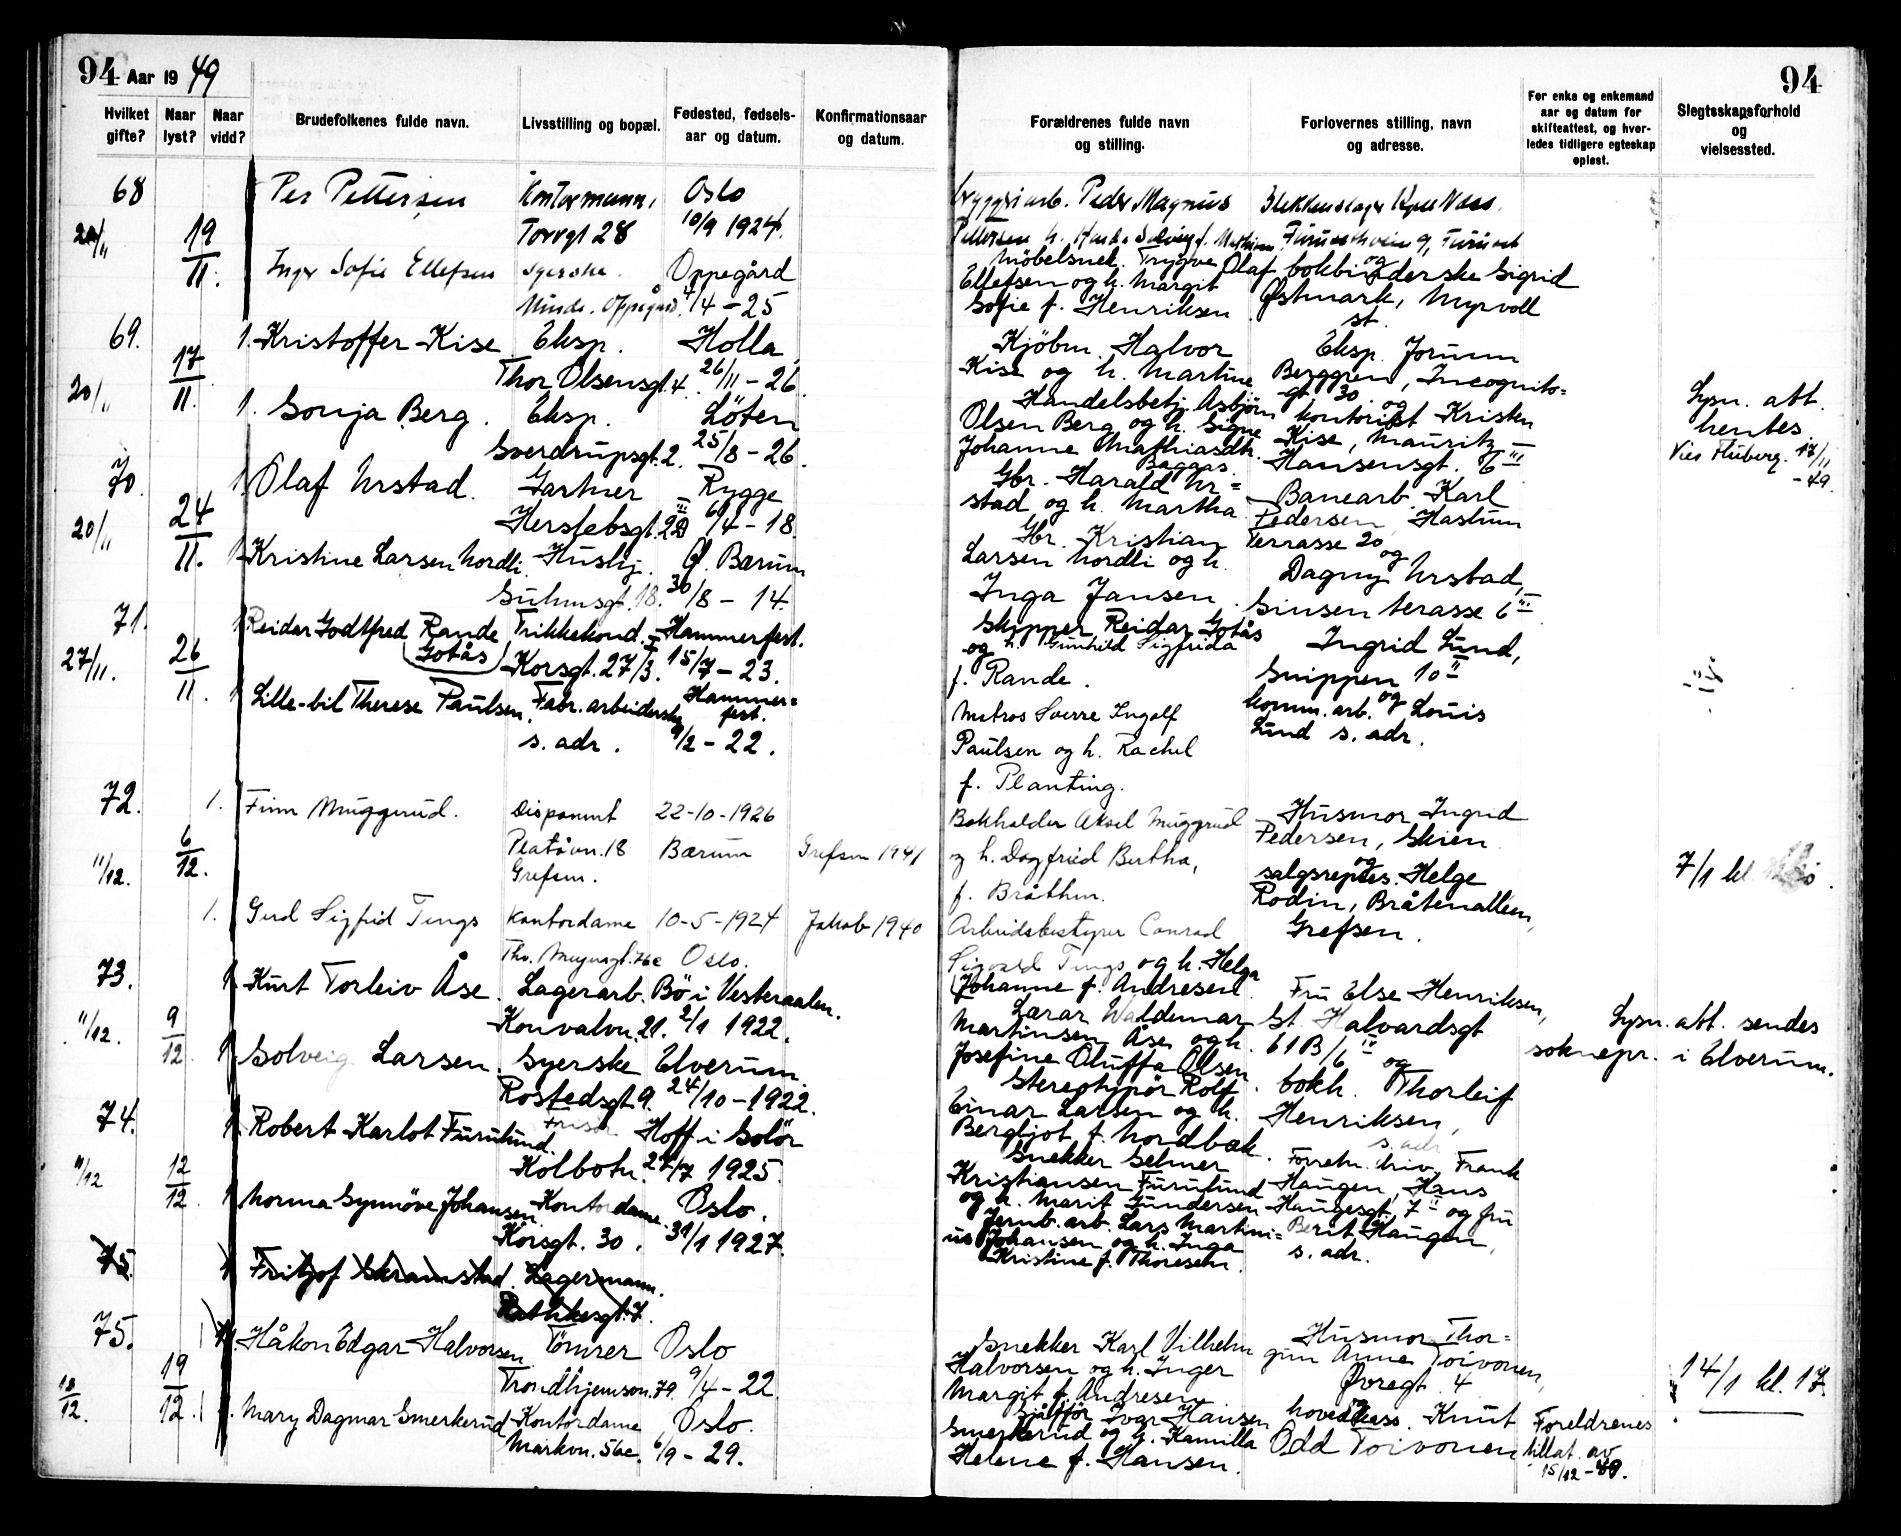 94 Aar 1949
94
Hvilket gifte?
Naar lyst?
Naar vidd?
Brudefolkenes fulde navn.
Livsstilling og bopæl.
Fødested, fødsels-
aar og datum.
Konfirmationsaar
og datum.
Forældrenes fulde navn
og stilling.
Forlovernes stilling, navn
og adresse.
For enke og enkemand
aar og datum for
skifteattest, og hvor-
ledes tidligere egteskap
opløst.
Slegtsskapsforhold
og
vielsessted.
68
Per Pettersen
Kontormann,
Oslo
Torvgt 28
10/9 1924.
20/11
19/11.
Inger Sofie Ellefsen
syerske.
Oppegård
Oppegård.
4/4 – 25
Bryggeriarb. Peder Magnus
Pettersen
Møbelsnek. Trygve Olaf
Ellefsen og h. Margit
Sofie f. Henriksen
Blikkenslager
og
bokbinderske Sigrid
Østmark, Myrvoll
st.
69.
1. Kristoffer Kise
Eksp.
Holla
Thor Olsensgt. 4.
26/11 – 26.
20/11
17/11.
1. Sonja Berg.
Eksp.
Løten
Sverdrupsgt. 2.
25/8 – 26.
Kjøbm. Halvor
Kise og h. Martine
Handelsbetj. Asbjörn
Olsen Berg og h. Signe
Johanne Mathiasdtr.
Baggas.
Eksp. Jorunn
Berggren, Incognito-
gt. 30 og
kontorist Kristen
Kise, Mauritz
Hansensgt. 6 III
Lysn. att.
hentes
17/11
-49.
70.
1. Olaf Urstad.
Gartner
Rygge
Herslebsgt. 2B III
6/4 – 18
20/11
24/11.
1. Kristine Larsen Nordli.
Hushj.
Ø. Bærum
Suhmsgt. 18.
30/8 – 14.
Gbr. Harald Ur=
stad og h. Martha
Gbr. Kristian
Larsen Nordli og h.
Inga Jansen.
Banearb. Karl
Pedersen, Hasturn
Terrasse 20
og
Dagny Urstad,
Sinsen terasse 6 III
71.
1. Reidar Godtfred Rande
(Gotås)
Trikkekond.
Hammerfest.
Korsgt. 27/I.
15/7 – 23.
27/11.
26/11.
1. Lille-bil Therese Paulsen.
Fabr. arbeiderske
Hammer=
fest.
s. adr.
9/2 – 22.
Skipper Reidar Gotås
og h. Gunhild Sigfrida
f. Rande.
Matros Sverre Ingolf
Paulsen og h. Rachel
f. Planting.
Ingrid Lund,
Snippen 10 II
og
komm. arb. Louis
Lund s. adr.
72.
1. Finn Muggerud.
Disponent
22-10-1926
Platåvn. 18
Bærum
Grefsen 1941
Grefsen.
11/12.
6/12.
1. Gerd Sigfrid Tengs
Kontordame
10-5-1924
Jakob 1940
Oslo.
Bokholder Aksel Muggerud
og h. Dagfried Bertha,
f. Bråthen.
Arbeidsbestyrer Conrad
Sigvald Tengs og h. Helga
Johanne f. Andresen
Husmor Ingrid
Pedersen, Skien
og
salgsrepres. Helge
Rodin, Bråtenalleen,
Grefsen.
7/1 kl.
73.
1. Kurt Torleiv Åse.
Lagerarb.
Bö i Vesteraalen.
Konvalvn. 21.
2/1 1922.
11/12.
9/12
1. Solveig Larsen.
Syerske
Elverum.
Rostedsgt. 9.
24/10 – 1922.
Lærer Waldemar
Martinsen Åse og h.
Josefine Oluffa Olsen
Stereotypör Rolf
Einar Larsen og h.
Bergljot f. Nordbak.
Fru Else Henriksen,
St. Halvardsgt
61B/6 IV og
bokh. Thorleif
Henriksen,
s. adr
Lysn. att. sendes
soknepr. i Elverum.
74.
1. Robert Karlot Furulund.
Frisør
Hoff i Solör
Kolbotn.
27/7 1925.
11/12
12/12.
1. Norma Synnöve Johansen
Kontordame.
Oslo.
Korsgt. 30.
31/1 1927.
Snekker Selmer
Kristiansen Furulund
og h. Marit Gundersen
Jernb. arb. Lars Martini=
us Johansen og h. Inga
Kristine f. Thoresen.
Forretn. driv. Frank
Haugen, Hans
Haugesgt. 7 II og fru
Berit Haugen,
s. adr.
75.
1. Fritjof Skramstad.
Lagermann.
Rathkesgt. 7.
75.
1. Håkon Edgar Halvorsen
Tömrer
Oslo
Trondhjemsvn. 79.
9/4 – 22.
18/12.
19/12.
1. Mary Dagmar Smerkerud
Kontordame
Oslo.
Markvn. 56c.
6/9 – 29.
Snekker Karl Vilhelm
Halvorsen og h. Inger
Margit f. Andresen
Sjåfför Ivar Hansen
Smerkerud og h. Kamilla
Helene f. Hansen.
Husmor Thor=
gun Anne Toivonen,
Øvregt. 4
og
hovedkass. Knut
Odd Toivonen
Foreldrenes
tillat. av
15/12 – 49.
14/1 kl. 17.